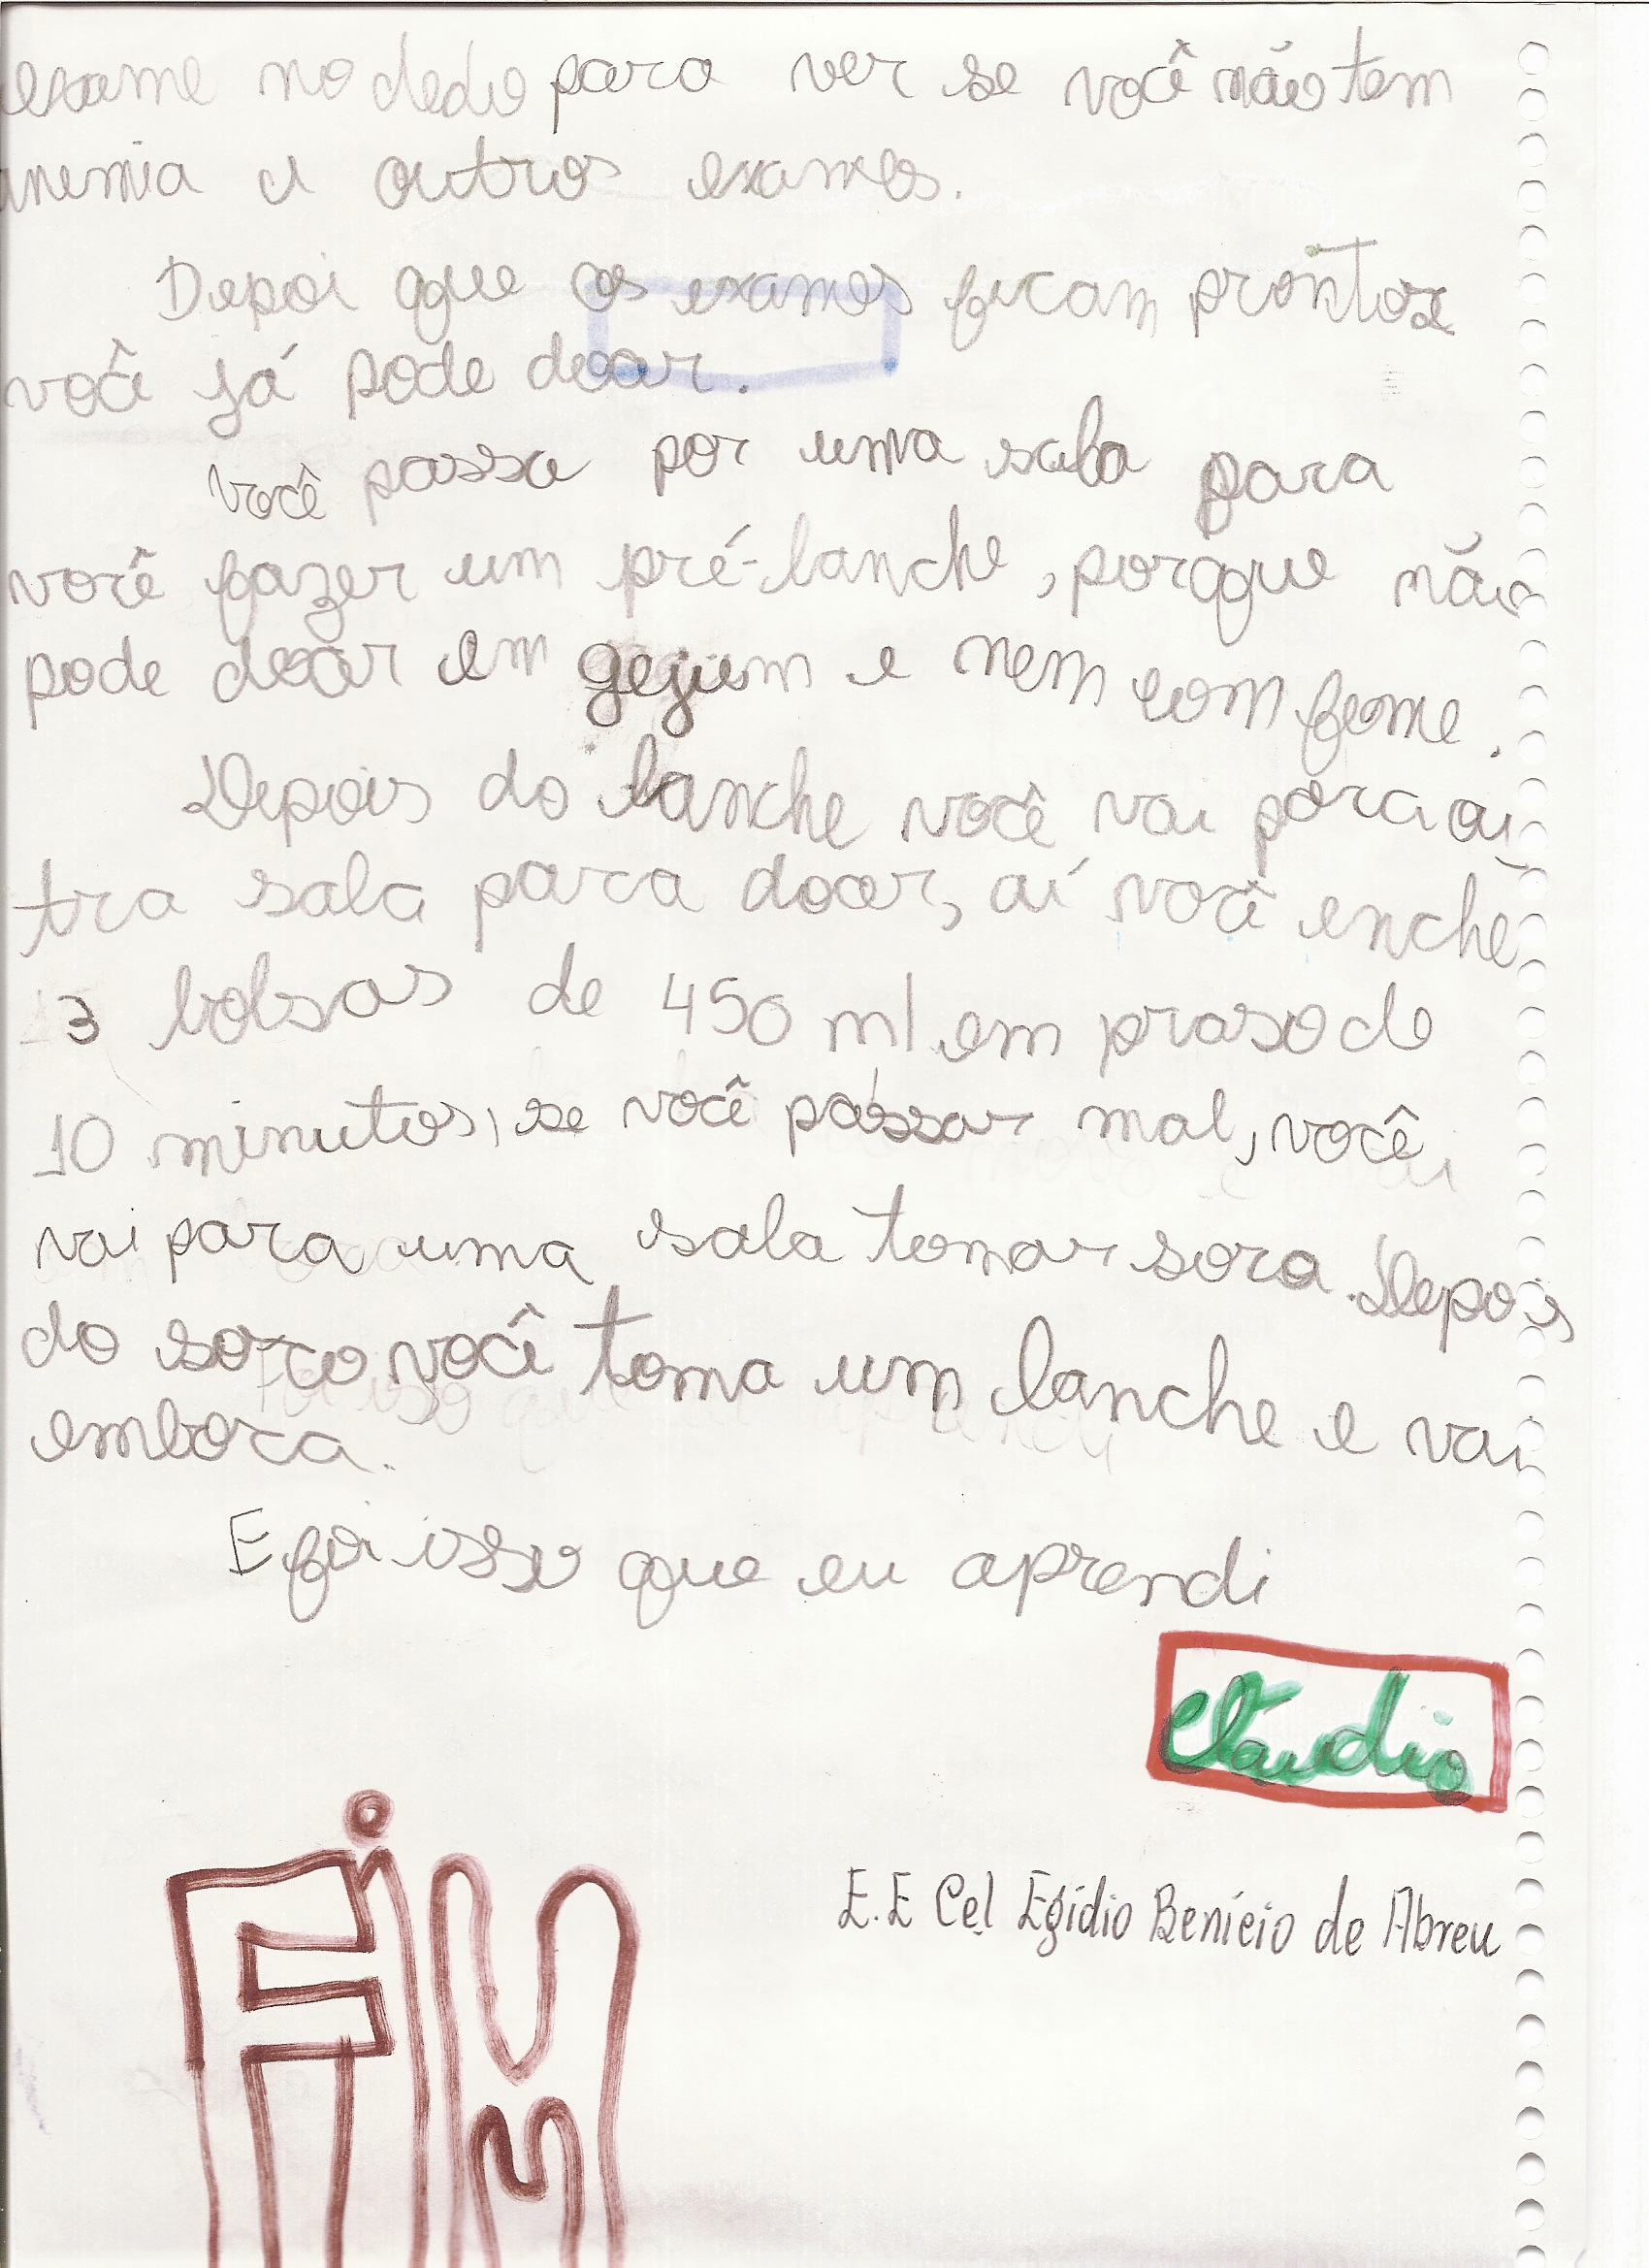 exame no dedo para ver se você não tem
anemia e outros exames.
Depoi que os exames ficam prontos
você já pode doar.
você passa por uma sala para
você fazer um pré-lanche, porque não
pode doar em gejum e nem com fome.
Depois do lanche você vai para ou
tra sala para doar, aí você enche
3 bolsas de 450 ml em praso de
10 minutos, se você passar mal, você
vai para uma sala tomar soro. Depois
do soro você toma um lanche e vai
embora.
E foi isso que eu aprendi
Cláudio
E.E Cel Egídio Benício de Abreu
FIM